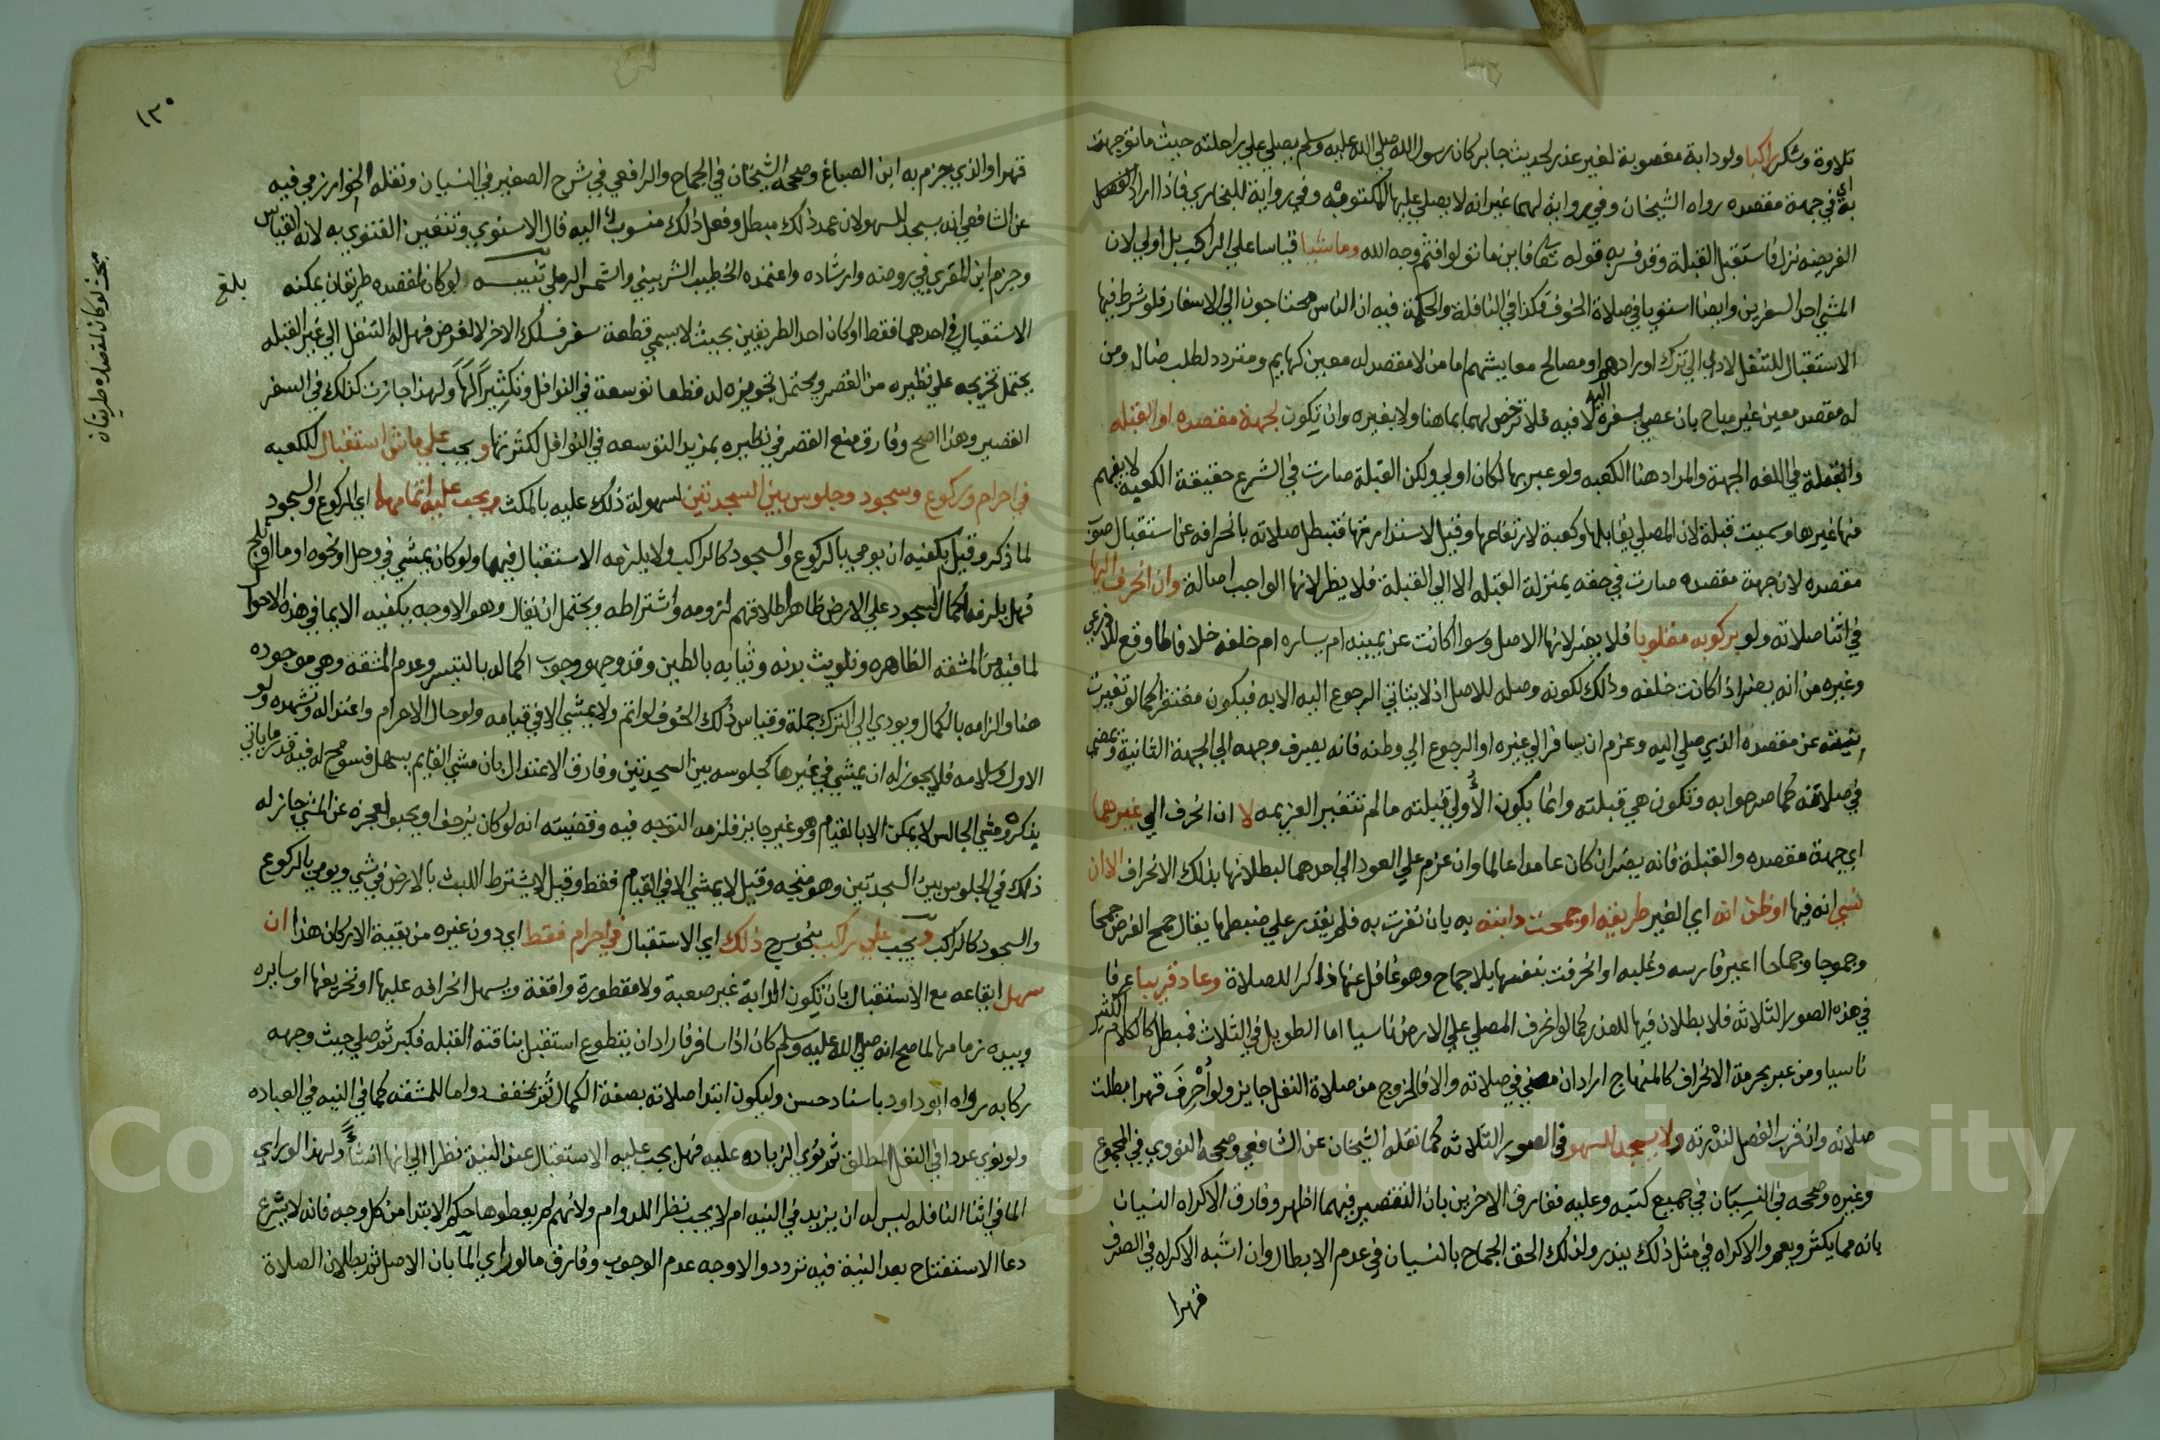 تلاوة وشكر راكبا ولو دابة مغصوبة لغير عذر لحديث جابر كان رسول الله صلى الله عليه وسلم يصلي علي راحلته حيث ما توجهت
به اي في جهة مقصده رواه الشيخان وفي رواية لهما غير انه لا يصلي عليها المكتوبة وفي رواية للبخاري فاذا اراد
الفريضه نزل فاستقبل القبلة وقد فسر به قوله تعالى فاينما تولوا فثم وجه الله وماشيا قياسا علي الراكب بل اولي لان
المشي احد السفرين وايضا استويا في صلاة الخوف فكذا في النافلة والحكمة فيه ان الناس محتاجون الي الاسفار فلو شرط فيها
الاستقبال للتنفل لادي الي ترك اورادهم او مصالح معايشهم اما من لا مقصد له معين كهايم ومتردد لطلب ضال ومن
له مقصد معين غير مباح بان عصي بسفره اليه لا فيه فلا ترخص لهما بما هنا ولا بغيره وان تكون لجهة مقصده او القبله
والقبلة في اللغه الجهة والمراد هنا الكعبه ولو عبر بها لكان اولي ولكن القبلة صارت في الشرع حقيقة الكعبة لا يفهم
منها غيرها وسميت قبلة لان المصلي يقابلها وكعبة لارتفاعها وقيل لاستدارتها فتبطل صلاته بانحرافه عن استقبال صوب
مقصده لان جهة مقصده صارت في حقه بمنزلة القبله الا الي القبلة فلا يضر لانها الواجب اصالة وان انحرف اليها
في اثنا صلاته ولو بركوبه مقلوبا فلا يضر لانها الاصل وسوا كانت عن يمينه ام يساره ام خلفه خلافا لما وقع للاذرعي
وغيره من انه يضر اذا كانت خلفه وذلك لكونه وصله للاصل اذ لا يتاتي الرجوع اليه الا به فيكون مغتفرا كما لو تغيرت
نيته عن مقصده الذي صلي اليه وعزم ان يسافر الي غيره او الرجوع الي وطنه فانه يصرف وجهه الي الجهة الثانية ويمضي
في صلاته كما صرحوا به وتكون هي قبلته وانما يكون الأولي قبلته ما لم تتغير العزيمه لا ان انحرف الي غيرهما
اي جهة مقصده والقبلة فانه يضر ان كان عامدا عالما وان عزم علي العود الي احدهما لبطلانها بذلك الانحراف الا ان
نسي انه فيها او ظن انه اي الغير طريقه او جمحت دابته به بان نفرت به فلم يقدر علي ضبطها يقال جمح الفرس جمحا
وجموحا وجماحا اعتز فارسه وغلبه او انحرفت بنفسها بلا جماح وهو غافل عنها ذاكرا للصلاة وعاد قريبا عرفا
في هذه الصور الثلاثه فلا بطلان فيها للعذر كما لو انحرف المصلي علي الارض ناسيا اما الطويل في الثلاث فمبطل كالكلام الكثير
ناسيا ومن عبر بحرمة الانحراف كالمنهاج اراد ان مضي في صلاته والا فالخروج من صلاة النفل جايز ولو أُحْرِفَ قهرا بطلت
صلاته وان قرب الفصل لندرته ولا يسجد للسهو في الصور الثلاثه كما نقله الشيخان عن الشافعي وصححه النووي في المجموع
وغيره وصححه في النسيان في جميع كتبه وعليه ففارق الاخرين بان التقصير فيهما اظهر وفارق الاكراه النسيان
بانه مما يكثر ويعم والاكراه في مثل ذلك يندر ولذلك الحق الجماح بالنسيان في عدم الابطال وان اشبه الاكراه في الصرف
قهرا
١٣٠
قهرا والذي جزم به ابن الصباغ وصححه الشيخان في الجماح والرافعي في شرح الصغير في النسيان ونقله الخوارزمي فيه
عن الشافعي انه يسجد للسهو لان عمد ذلك مبطل وفعل ذلك منسوب اليه قال الاسنوي وتتعين الفتوي به لانه القياس
وجزم ابن المقري في روضه وارشاده واعتمده الخطيب الشربيني والشمس الرملي تنبيه لو كان لمقصده طريقان يمكنه
بلغ
مبحث لو كان لمقصده طريقان
الاستقبال في احدهما فقط او كان احد الطريقين بحيث لا يسمي قطعة سفر فسلك الاخر لا لغرض فهل له التنفل الي غير القبله
يحتمل تخريجه علي نظيره من القصر ويحتمل تجويزه له قطعا توسعة في النوافل وتكثيرًا لها ولهذا جازت كذلك في السفر
القصير وهذا اصح وفارق منع القصر في نظيره بمزيد التوسعه في النوافل لكثرتها ويجب علي ماش استقبال للكعبه
في احرام وركوع وسجود وجلوس بين السجدتين لسهولة ذلك عليه بالمكث ويجب عليه اتمامهما اي الركوع والسجود
لما ذكر وقيل يكفيه ان يومي بالركوع والسجود كالراكب ولا يلزمه الاستقبال فيهما ولو كان يمشي في وحل او نحوه او ما او ثلج
فهل يلزمه اكمال السجود علي الارض ظاهر اطلاقهم لزومه واشتراطه ويحتمل ان يقال وهو الاوجه يكفيه الايما في هذه الاحوال
لما فيه من المشقه الظاهره وتلويث بدنه وثيابه بالطين وقد وجهو وجوب اكماله بالتيسر وعدم المشقة وهي موجوده
هنا والزامه بالكمال يودي الي الترك جملة وقياس ذلك الخوف لو اتم ولا يمشي الا في قيامه ولو حال الاحرام واعتداله وتشهده ولو
الاول وسلامه فلا يجوز له ان يمشي في غيرها كجلوسه بين السجدتين وفارق الاعتدال بان مشي القايم يسهل فسومح له فيه قدر ما ياتي
بذكره ومشي الجالس لا يمكن الا بالقيام وهو غير جايز فلزمه التوجه فيه وقضيته انه لو كان يزحف او يحبو لعجزه عن المشي جاز له
ذلك في الجلوس بين السجدتين وهو متجه وقيل لا يمشي الا في القيام فقط وقيل لا يشترط اللبث بالارض في شي ويومي بالركوع
والسجود كالراكب ويجب علي راكب بنحو سرج ذلك اي الاستقبال في احرام فقط اي دون غيره من بقية الاركان هذا ان
سهل ايقاعه مع الاستقبال بان تكون الدابة غير صعبة ولا مقطورة واقفة ويسهل انحرافه عليها او تحريفها او سايره
وبيده زمامها لما صح انه صلي الله عليه وسلم كان اذا سافر فاراد ان يتطوع استقبل بناقته القبله فكبر ثم صلي حيث وجهه
ركابه رواه ابو داود باسناد حسن وليكون ابتدا صلاته بصفة الكمال ثم يخفف دواما للمشقه كما في النيه في العباده
ولو نوي عددا في النفل المطلق ثم نوي الزياده عليه فهل يجب عليه الاستقبال عند النية نظرا الي انها انشاء ولهذا لو راي
الما في اثنا النافله ليس له ان يزيد في النيه ام لا يجب نظرا للدوام ولانهم لم يعطوها حكم الابتدا من كل وجه فانه لا يشرع
دعا الاستفتاح بعد النية فيه تردد والاوجه عدم الوجوب وفارق ما لو راي الما بان الاصل ثم بطلان الصلاة